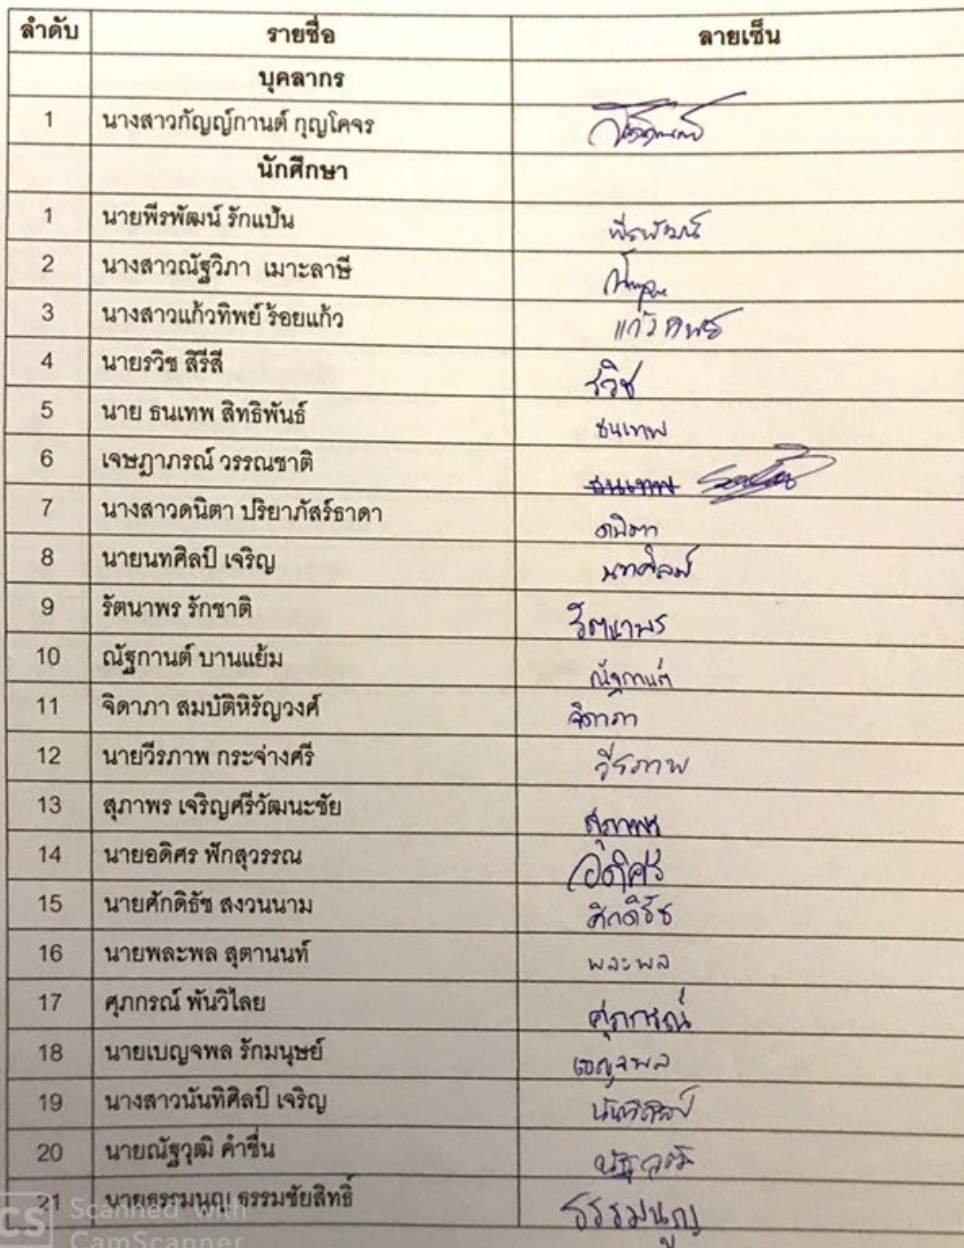 ลำดับ รายชื่อ ลายเซ็น
บุคลากร
1 นางสาวกัญญ์กานต์ กุญโคจร
นักศึกษา
1 นายพีรพัฒน์ รักแป้น พีรพัฒน์
2 นางสาวณัฐวิภา เมาะลาษี
3 นางสาวแก้วทิพย์ ร้อยแก้ว แก้วทิพย์
4 นายรวิช สิรีสี รวิช
5 นาย ธนเทพ สิทธิพันธ์ ธนเทพ
6 เจษฎาภรณ์ วรรณชาติ ธนเทพ
7 นางสาวดนิตา ปริยาภัสร์ธาดา ดนิตา
8 นายนทศิลป์ เจริญ นทศิลป์
9 รัตนาพร รักชาติ รัตนาพร
10 ณัฐกานต์ บานแย้ม ณัฐกานต์
11 จิดาภา สมบัติหิรัญวงศ์ จิดาภา
12 นายวีรภาพ กระจ่างศรี วีรภาพ
13 สุภาพร เจริญศรีวัฒนะชัย สุภาพร
14 นายอดิศร ฟักสุวรรณ อดิศร
15 นายศักดิธัช สงวนนาม ศักดิธัช
16 นายพละพล สุตานนท์ พละพล
17 ศุภกรณ์ พันวิไลย ศุภกรณ์
18 นายเบญจพล รักมนุษย์ เบญจพล
19 นางสาวนันทิศิลป์ เจริญ นันทิศิลป์
20 นายณัฐวุฒิ คำชื่น ณัฐวุฒิ
21 นายธรรมนูญ ธรรมชัยสิทธิ์ ธรรมนูญ
CS Scanned with
CamScanner